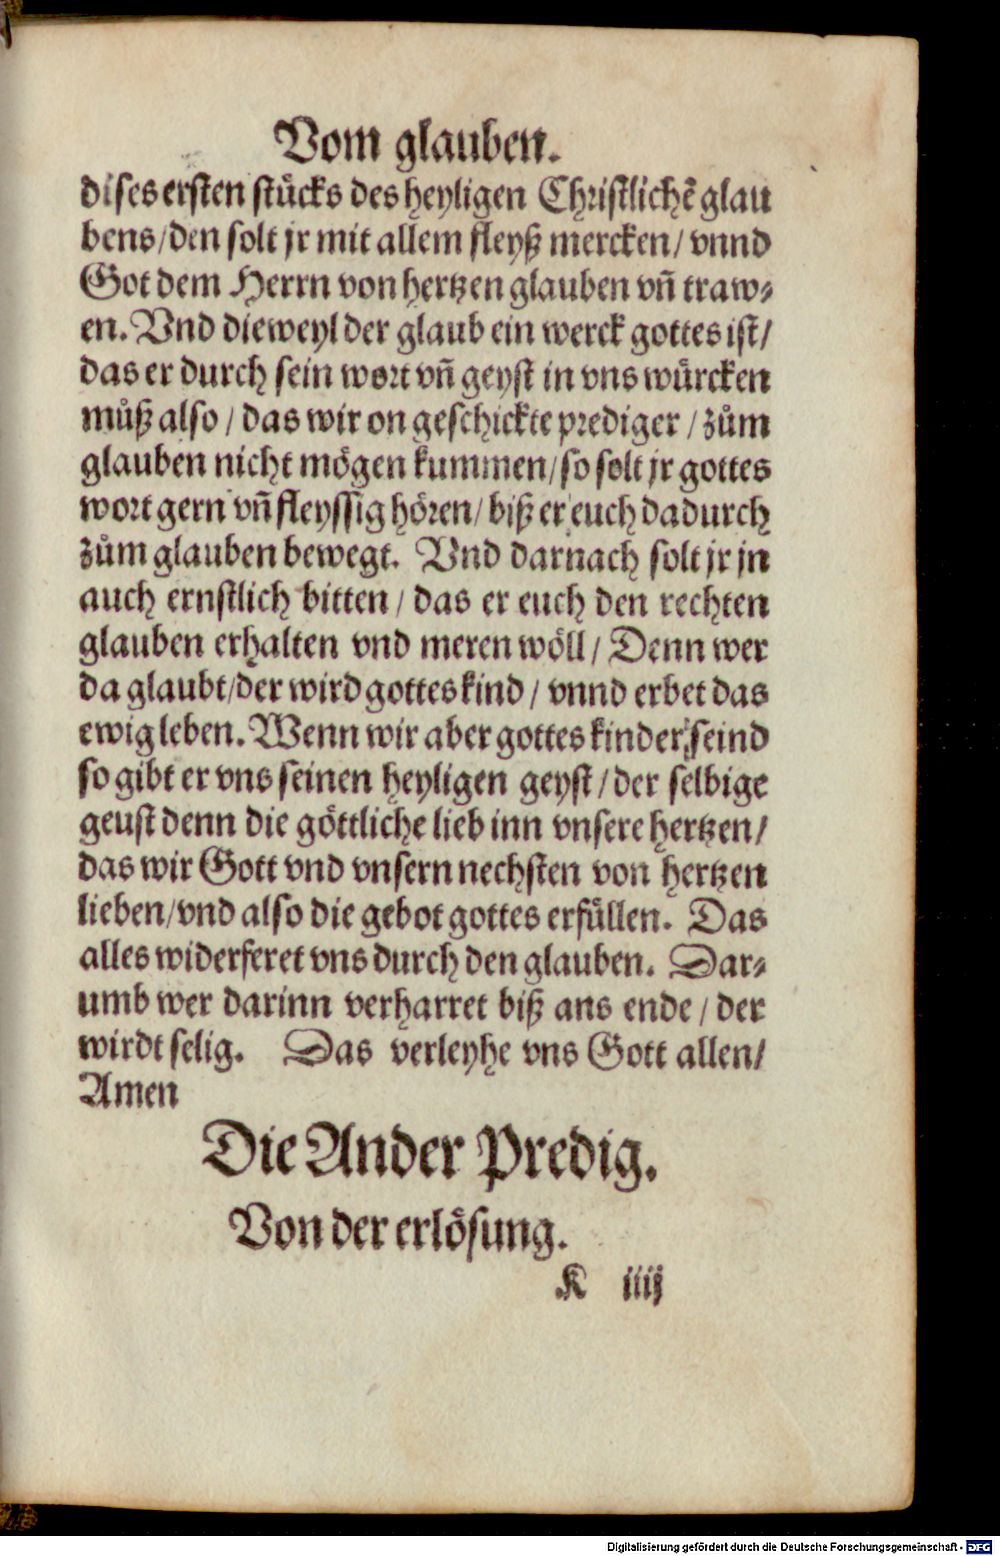 Vom glauben.
dises ersten stücks des heyligen Christlichē glau
bens/den solt jr mit allem fleyß mercken/ vnnd
Got dem Herrn von hertzen glauben vñ traw⸗
en. Vnd dieweyl der glaub ein werck gottes ist/
das er durch sein wort vñ geyst in vns würcken
můß also / das wir on geschickte prediger / zům
glauben nicht mögen kummen/so solt jr gottes
wort gern vñ fleyssig hören/ biß er euch dadurch
zům glauben bewegt. Vnd darnach solt jr jn
auch ernstlich bitten / das er euch den rechten
glauben erhalten vnd meren wöll / Denn wer
da glaubt/der wird gottes kind / vnnd erbet das
ewig leben. Wenn wir aber gottes kinder seind
so gibt er vns seinen heyligen geyst / der selbige
geust denn die göttliche lieb inn vnsere hertzen/
das wir Gott vnd vnsern nechsten von hertzen
lieben/vnd also die gebot gottes erfüllen. Das
alles widerferet vns durch den glauben. Dar⸗
umb wer darinn verharret biß ans ende / der
wirdt selig. Das verleyhe vns Gott allen/
Amen
Die Ander Predig.
Von der erlösung.
K iiij
Digitalisierung gefördert durch die Deutsche Forschungsgemeinschaft - DFG